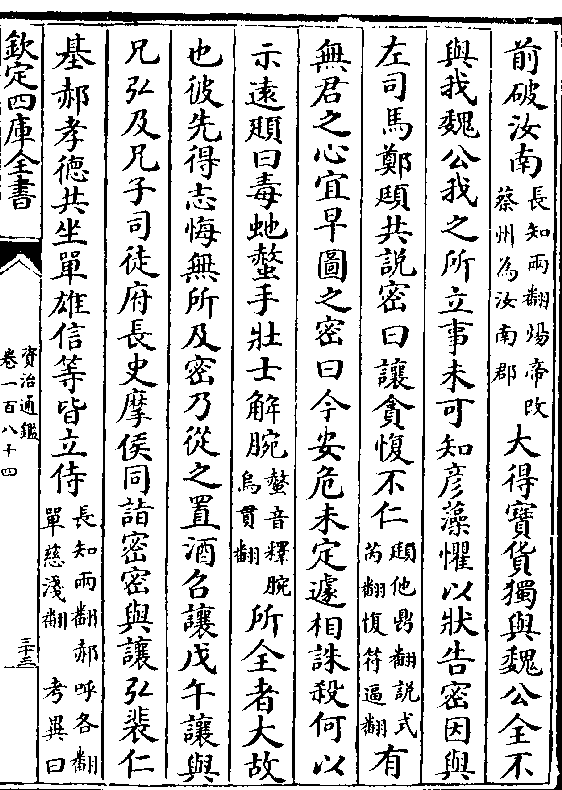 前破汝南長知兩翻煬帝改蔡州為汝南郡大得寳貨獨與魏公全不
與我魏公我之所立事未可知彥藻懼以狀告密因與
左司馬鄭頲共說密曰讓貪愎不仁頲他鼎翻說式芮翻愎符逼翻有
無君之心宜早圖之密曰今安危未定遽相誅殺何以
示遠頲曰毒虵螫手壯士解腕螫音釋腕烏貫翻所全者大故
也彼先得志悔無所及密乃從之置酒召讓戊午讓與
兄弘及兄子司徒府長史摩侯同詣密密與讓弘裴仁
基郝孝德共坐單雄信等皆立侍長知兩翻郝呼各翻單慈淺翻考異曰
欽定四庫全書
資治通鑑
卷一百八十四
三十三